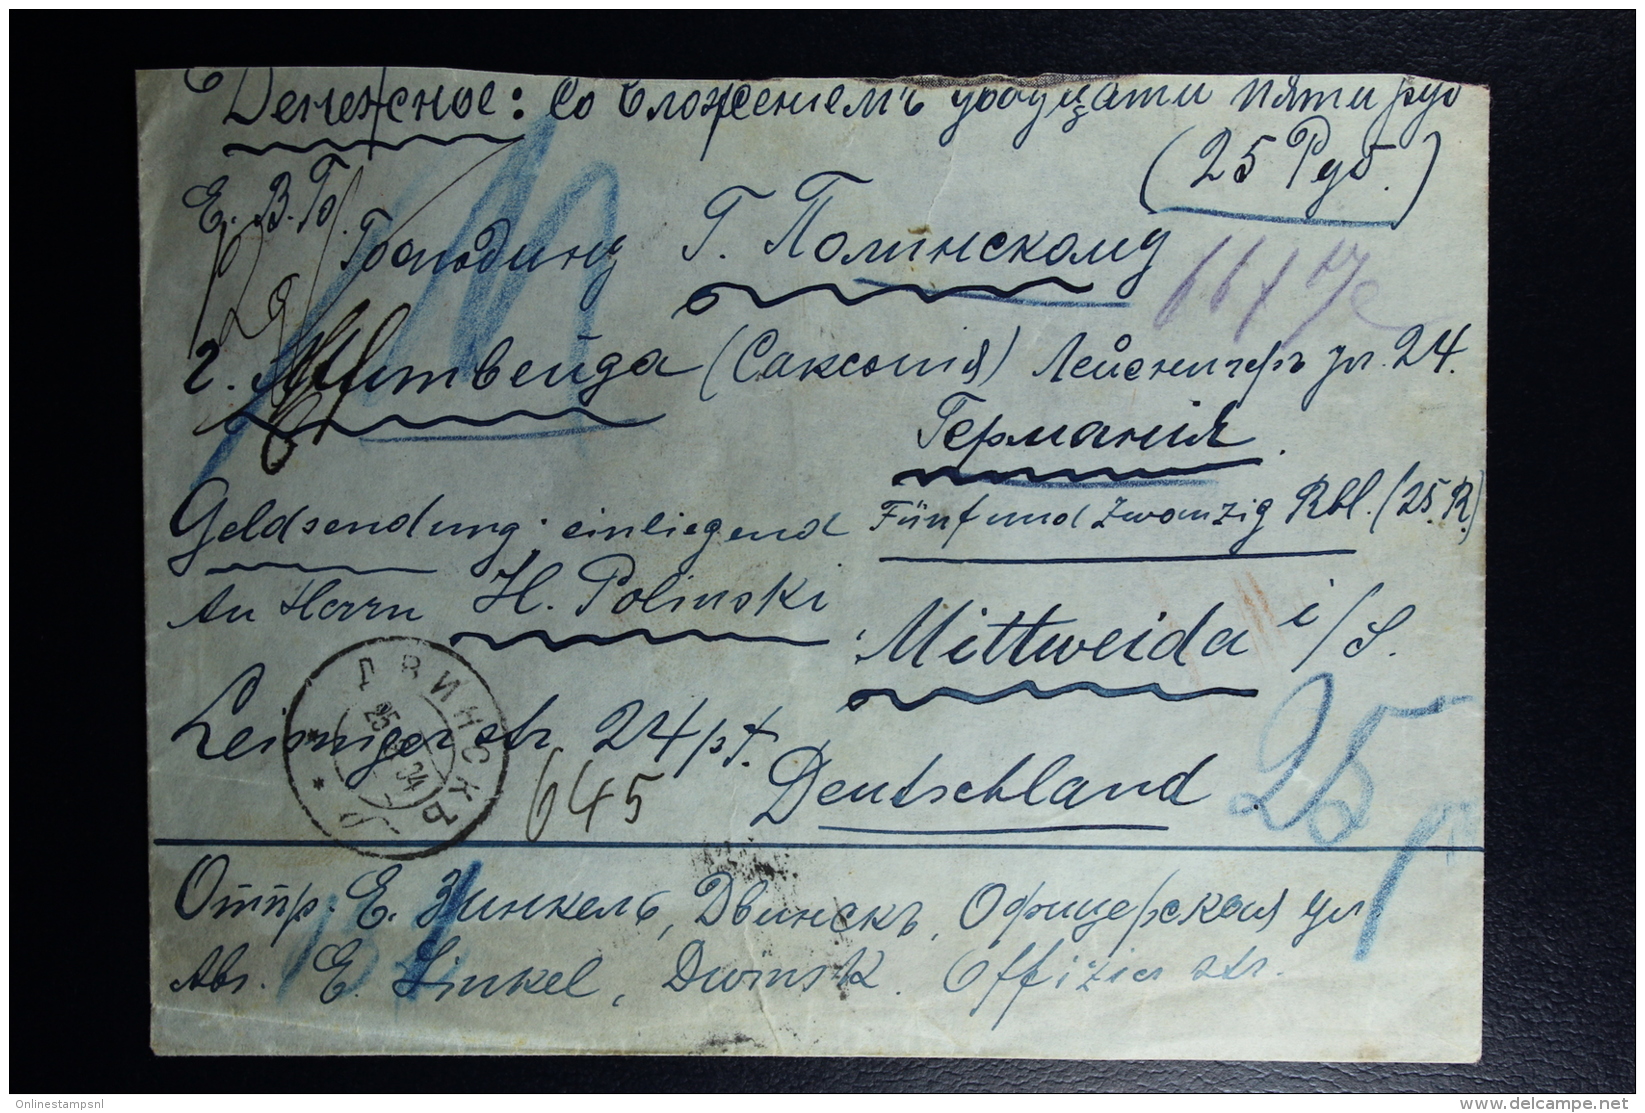 Денежное: со вложенiемъ двадцати пяти руб
(25 Руб.)
Е. В. Б.
Господину Г. Полинскому
г. Митвейда (Саксонiя) Лейснигеръ ул. 24.
Германiя.
Geldsendung: einliegend Fünf und zwanzig Rbl. (25. R.)
An Herrn H. Polinski
Mittweida i/S.
Leisnigerstr 24 pt.
Deutschland
ДВИНСКЪ
25 04
645
25 р
Отпр. Е. Зинкель, Двинскъ, Офицерская ул
Abs. E. Sinkel, Dwinsk. Offizier str.
Onlinestampsnl
delcampe.net